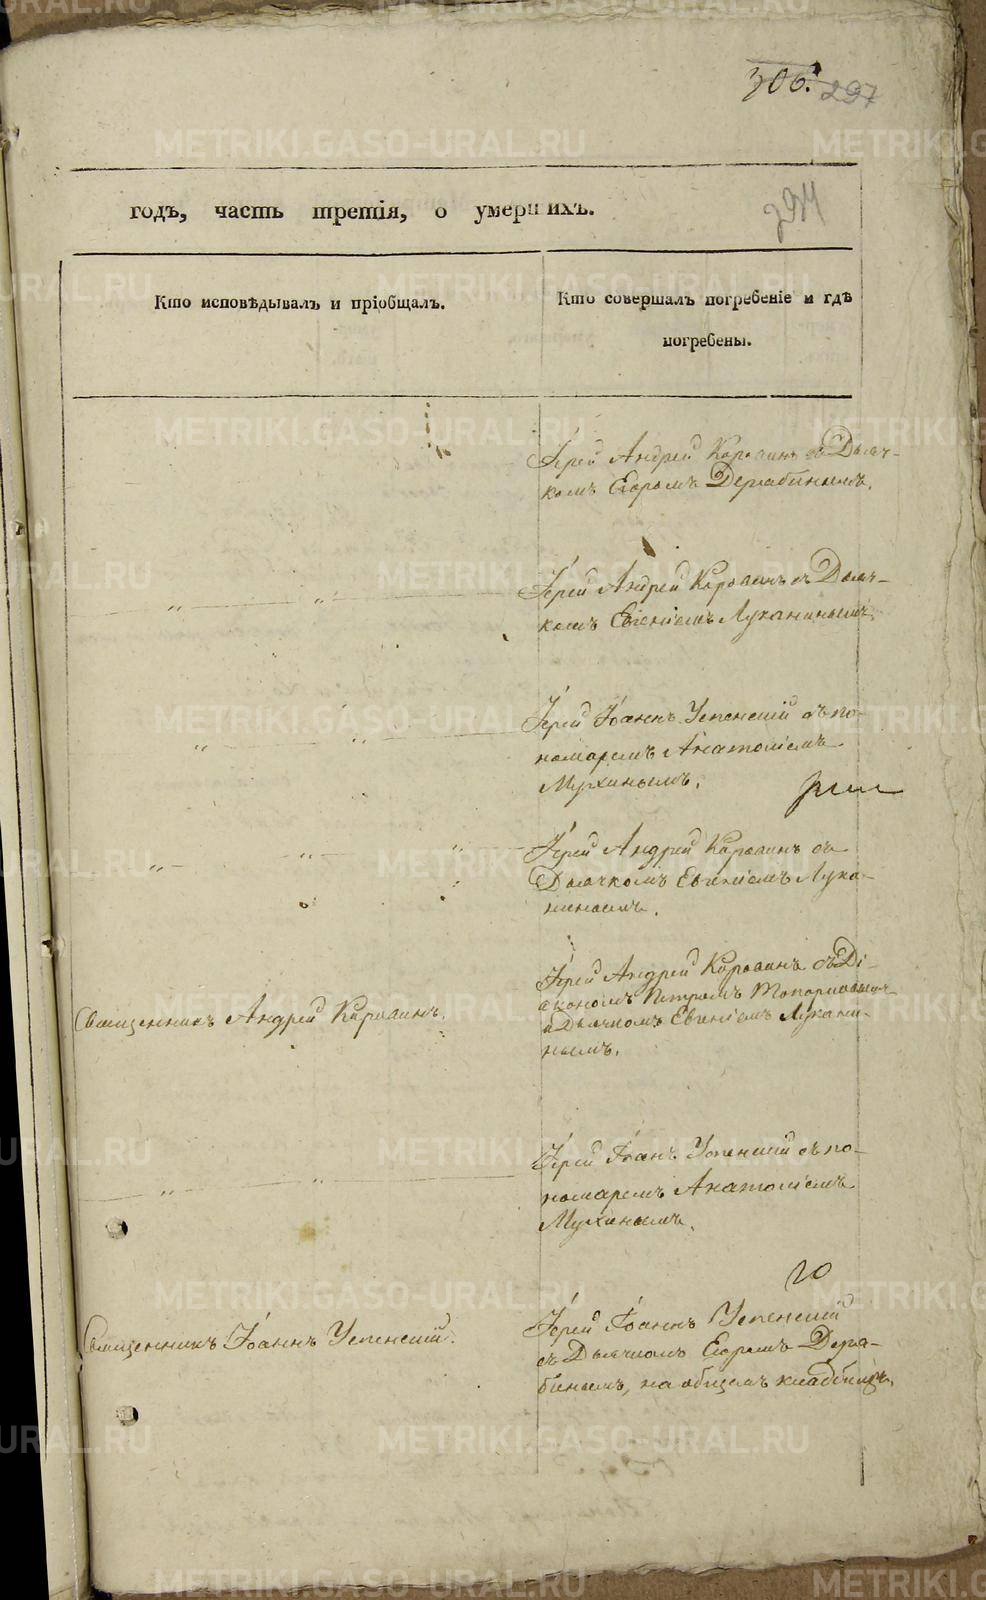 306.
297
294
годъ, часть третія, о умерших​ъ.
Кто исповѣдывалъ и пріобщалъ.
Кто совершалъ погребеніе и гдѣ
погребены.
Іерей Андрей Коровинъ съ Дьяч-
комъ Егоромъ Дерябинымъ.
Іерей Андрей Коровинъ съ Дьяч-
комъ Евгеніемъ Луканинымъ.
Іерей Іоаннъ Успенскій съ по-
номаремъ Анатоліемъ
Мухинымъ.
Іерей Андрей Коровинъ съ
Дьячкомъ Евгеніемъ Лука-
нинымъ.
Священникъ Андрей Коровинъ.
Іерей Андрей Коровинъ съ Ді-
акономъ Петромъ Топорковымъ
и Дьячкомъ Евгеніемъ Лукани-
нымъ.
Іерей Іоанъ Успенскій съ по-
номаремъ Анатоліемъ
Мухинымъ.
Священникъ Іоаннъ Успенскій.
Іерей Іоаннъ Успенскій
съ Дьячкомъ Егоромъ Деря-
бинымъ, на общемъ кладбищѣ.
METRIKI.GASO-URAL.RU